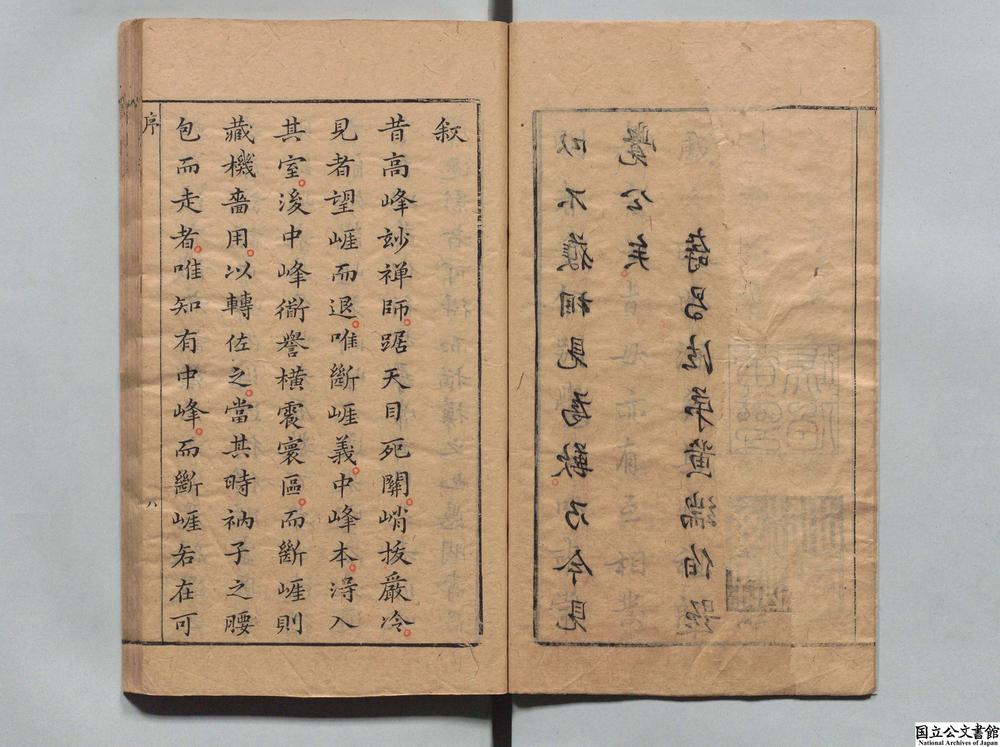 以不獲相見為歉乃今見
覺公矣
法弟黃端伯題
叙
昔高峰玅禅師踞天目死關峭拔嚴冷
見者望崕而退唯斷崕義中峰本淂入
其室後中峰衜譽橫震寰區而斷崕則
藏機嗇用以轉佐之當其時衲子之腰
包而走者唯知有中峰而斷崕若在可
序
国立公文書館
National Archives of Japan